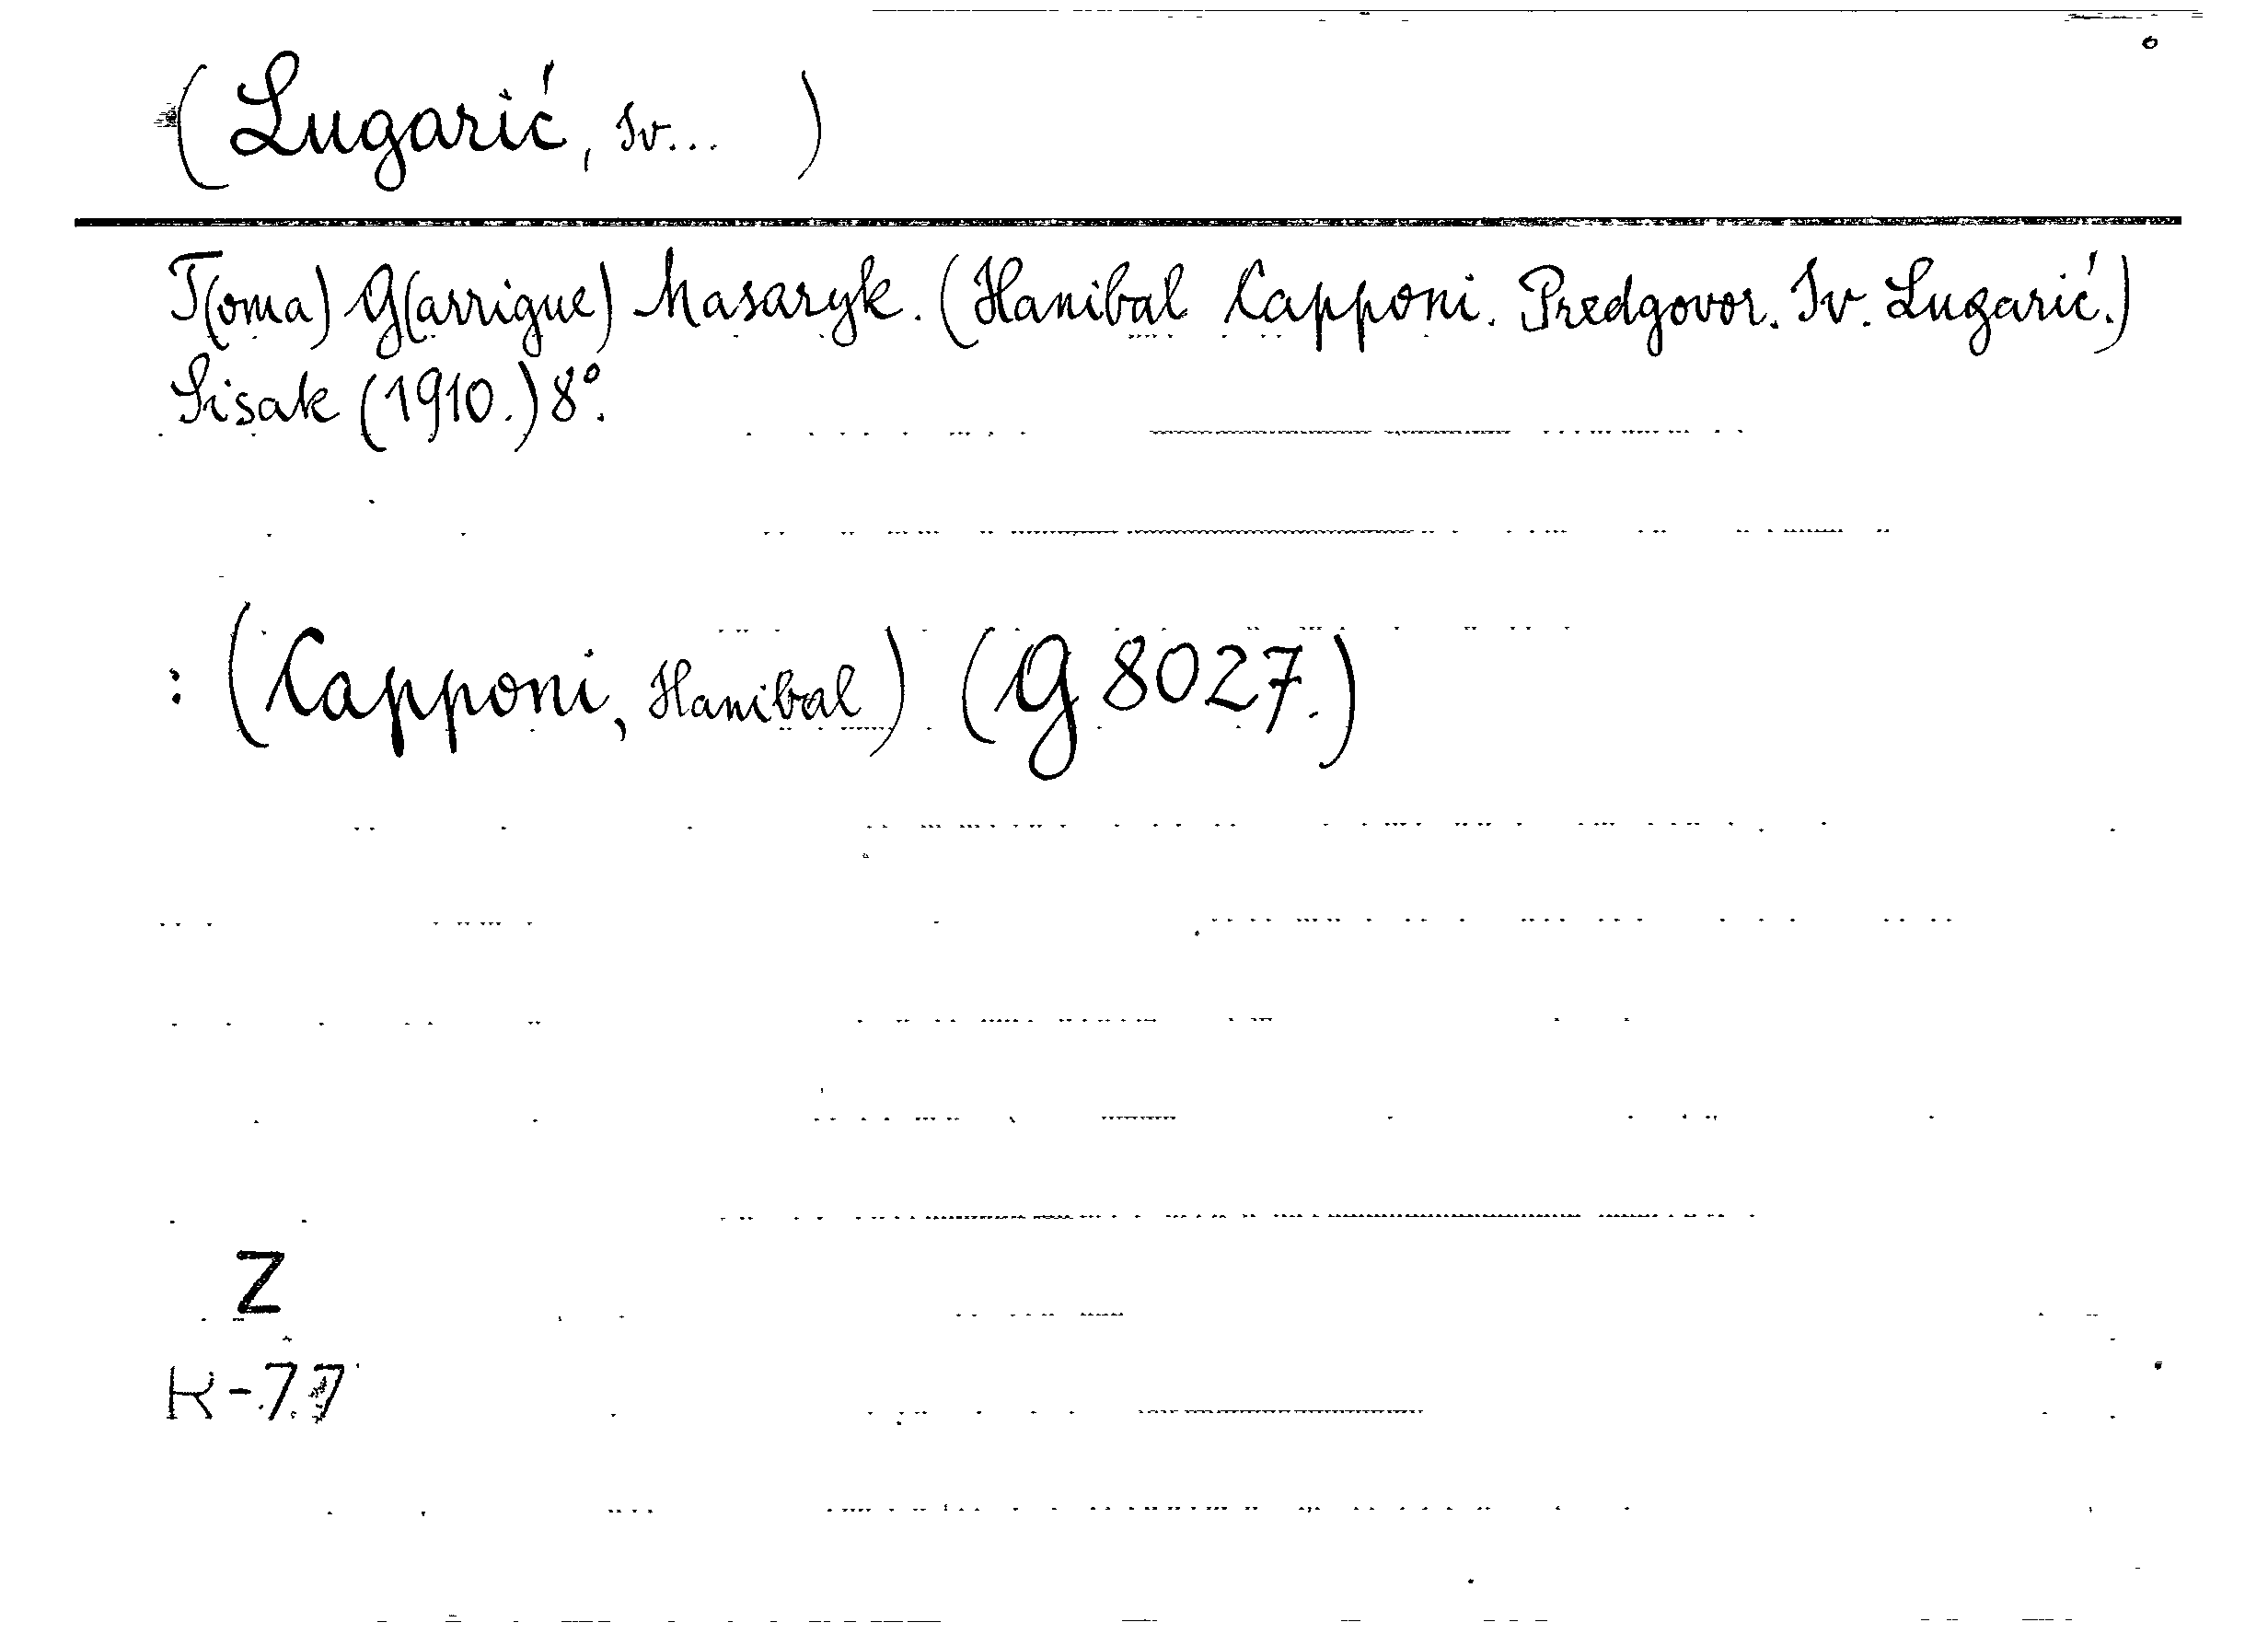 (Lugarić, Iv... )
T(oma) G(arrigue) Masaryk. (Hanibal Capponi. Predgovor. Iv. Lugarić.)
Sisak (1910.) 8°.
: (Capponi, Hanibal) (G 8027.)
Z
K-77